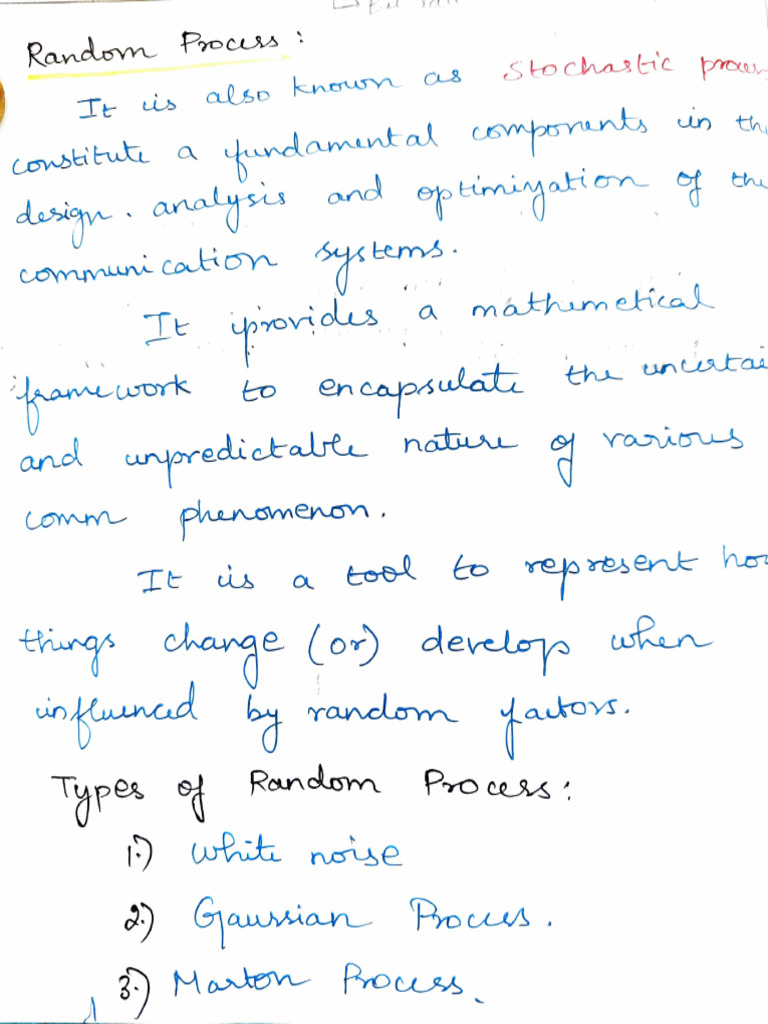 Random Process :
It is also known as Stochastic proces
constitute a fundamental components in the
design. analysis and optimization of the
communication systems.
It provides a mathemetical
framework to encapsulate the uncertai
and unpredictable nature of various
comm phenomenon.
It is a tool to represent how
things change (or) develop when
influenced by random factors.
Types of Random Process :
1.) White noise
2.) Gaussian Process.
3.) Markon Process.